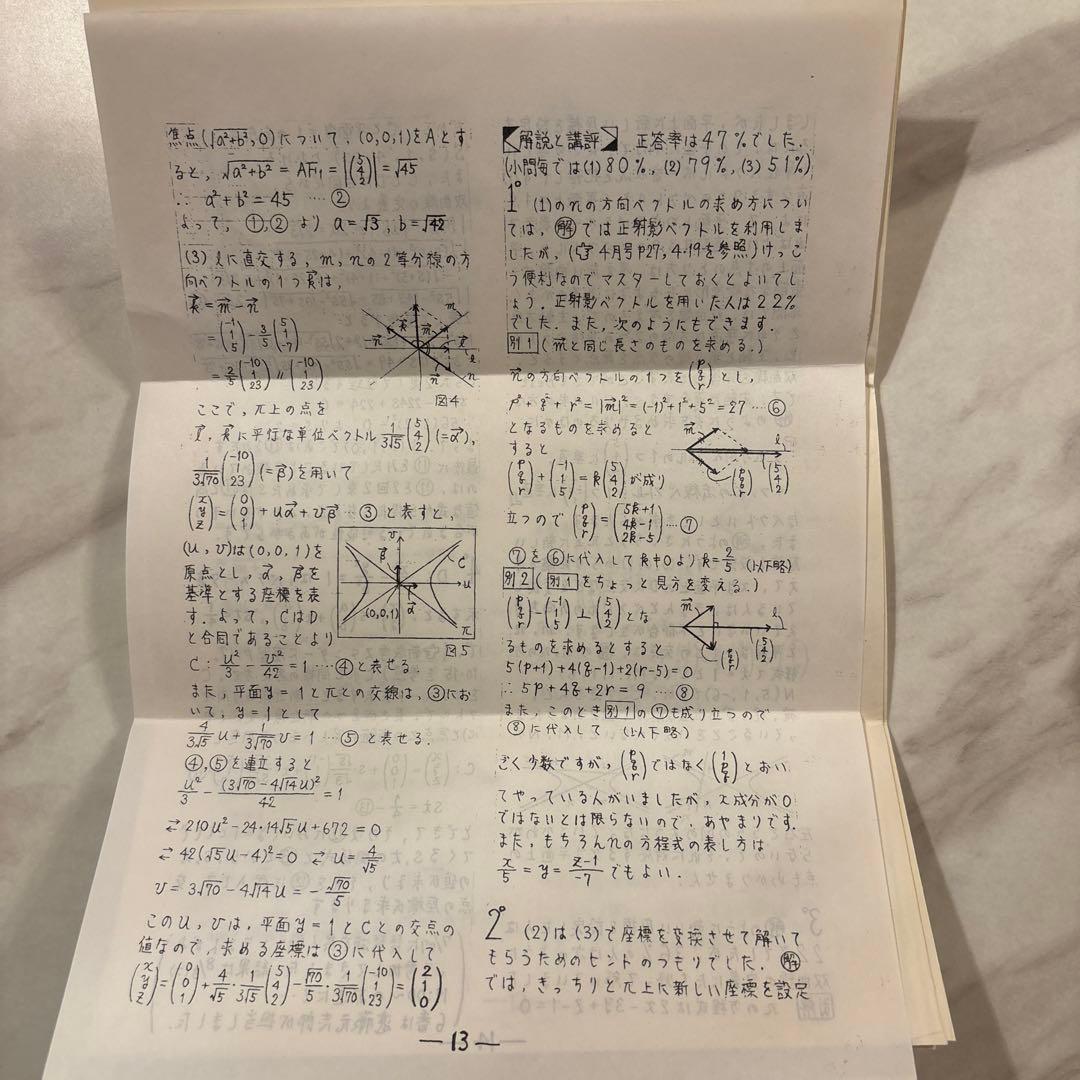 焦点(√a²+b², 0)について, (0,0,1)をAとす
ると, √a²+b² = AF₁ = |(5 4 2)| = √45
∴ a²+b² = 45 …… ②
よって, ①,② より a=√3, b=√42
(3) lに直交する, m, nの2等分線の方
向ベクトルの1つk→は,
k→ = m→ − n→
= (-1 1 5) − 3/5 (5 1 -7)
= 2/5 (-10 1 23) // (-10 1 23)
k→ m m→ −n→ l→ l n→ n
図4
ここで, π上の点を
l→, k→に平行な単位ベクトル 1/(3√5) (5 4 2) (=α→),
1/(3√70) (-10 1 23) (=β→)を用いて
(x y z) = (0 0 1) + uα→ + vβ→ …③ と表すと,
(u, v)は(0,0,1)を
原点とし, α→, β→を
基準とする座標を表
す. よって, CはD
と合同であることより
v β→ C u α→ (0,0,1) π
図5
C: u²/3 − v²/42 = 1 …④と表せる.
また, 平面y=1とπとの交線は, ③にお
いて, y=1として
4/(3√5) u + 1/(3√70) v = 1 …⑤ と表せる.
④,⑤を連立すると
u²/3 − (3√70 − 4√14 u)²/42 = 1
⇄ 210u² − 24·14√5 u + 672 = 0
⇄ 42(√5 u − 4)² = 0 ⇄ u = 4/√5
v = 3√70 − 4√14 u = − √70/5
このu, vは, 平面y=1とCとの交点の
値なので, 求める座標は③に代入して
(x y z) = (0 0 1) + 4/√5 · 1/(3√5) (5 4 2) − √70/5 · 1/(3√70) (-10 1 23) = (2 1 0)
解説と講評 正答率は47%でした.
(小問毎では(1)80%, (2)79%, (3)51%)
1° (1)のnの方向ベクトルの求め方につい
ては, 解では正射影ベクトルを利用しま
したが, (☞4月号p27, 4·19を参照)けっこ
う便利なのでマスターしておくとよいでし
ょう. 正射影ベクトルを用いた人は22%
でした. また, 次のようにもできます.
別1 (m→と同じ長さのものを求める.)
n→の方向ベクトルの1つを(p q r)とし,
p²+q²+r² = |m→|² = (-1)²+1²+5² = 27 …⑥
となるものを求めると
すると
m→ l (p q r) (5 4 2)
(p q r) + (-1 1 5) = k (5 4 2) が成り
立つので (p q r) = (5k+1 4k-1 2k-5) …⑦
⑦を⑥に代入してk≠0よりk=2/5 (以下略)
別2 (別1をちょっと見方を変える.)
(p q r) − (-1 1 5) ⊥ (5 4 2) とな
m→ l (p q r) (5 4 2)
るものを求めるとすると
5(p+1)+4(q-1)+2(r-5)=0
∴ 5p+4q+2r = 9 …⑧
また, このとき別1の⑦も成り立つので,
⑧に代入して (以下略)
ごく少数ですが, (p q r)ではなく(1 p q)とおい
てやっている人がいましたが, x成分が0
ではないとは限らないので, あやまりです.
また, もちろんnの方程式の表し方は
x/5 = y = (z-1)/-7 でもよい.
2° (2)は(3)で座標を変換させて解いて
もらうためのヒントのつもりでした. 解
では, きっちりとπ上に新しい座標を設定
— 13 —